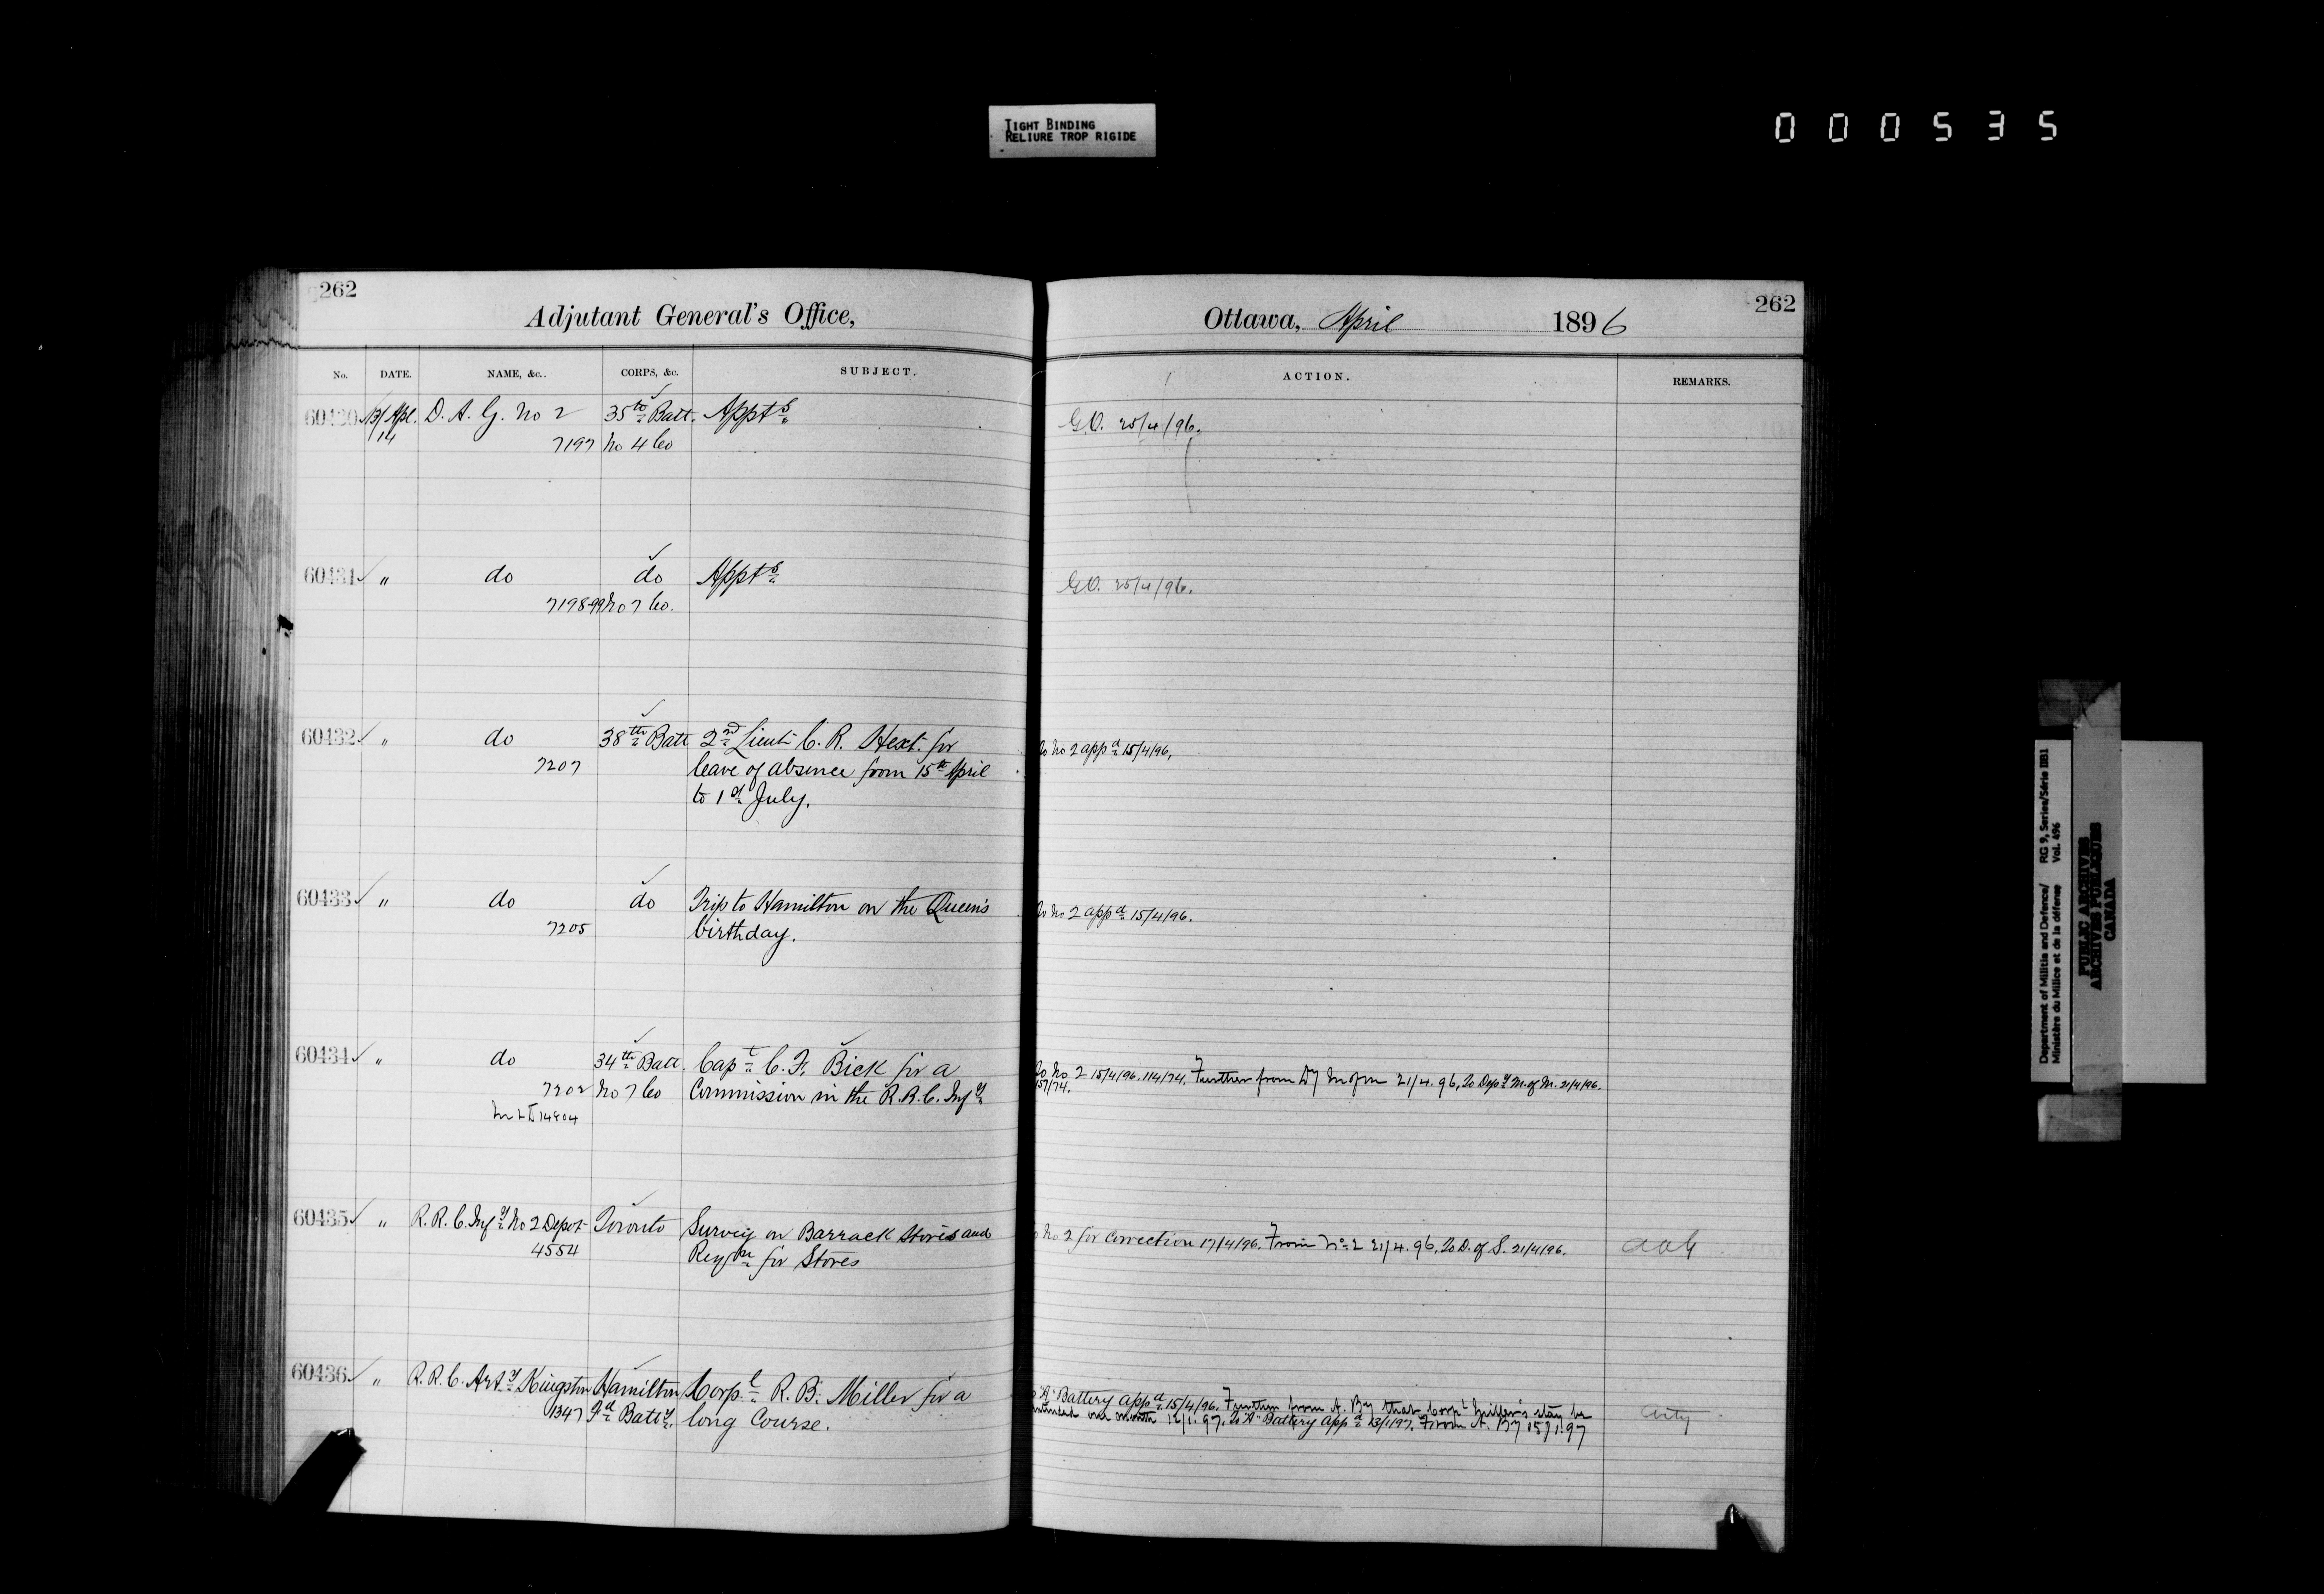 TIGHT BINDING
RELIURE TROP RIGIDE
000535
262
Adjutant General's Office,
No. DATE. NAME, &c.. CORPS, &c. SUBJECT.
60430 13/Apl. D. A. G. No 2 35th Batt. Appts
14 7197 No 4 Co
60431 " do do Appts
7198-99 No 7 Co.
60432 " do 38th Batt 2nd Lieut C. R. Hext. for
7207 leave of absence from 15th April
to 1st July.
60433 " do do Trip to Hamilton on the Queen's
7205 birthday.
60434 " do 34th Batt. Capt C. F. Bick for a
7202 No 7 Co Commission in the R.R.C. Infy
14804
60435 " R.R.C. Infy No 2 Depot Toronto Survey on Barrack Stores and
4554 Reqn for Stores
60436 " R.R.C. Arty Kingston Hamilton Corpl R. B. Miller for a
1347 Fd Batty. long Course.
262
Ottawa, April 1896
ACTION. REMARKS.
G.O. 25/4/96.
G.O. 25/4/96.
To No 2 appd 15/4/96.
To No 2 appd 15/4/96.
To No 2 15/4/96. 114/74. Further from Dy M of M 21/4.96, To Depy M. of M. 21/4/96.
157/74.
No 2 for Correction 17/4/96. From No 2 21/4.96, To D. of S. 21/4/96.
"A" Battery appd 15/4/96. Further from A. By that Corpl Miller's stay be
one month 12/1.97, To "A" Battery appd 13/1/97. From A. By 15/1.97
Arty
Department of Militia and Defence/ RG 9, Series/Série IIB1
Ministère du Milice et de la défense Vol. 496
PUBLIC ARCHIVES
ARCHIVES PUBLIQUES
CANADA